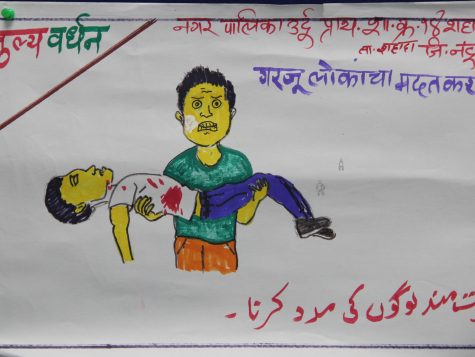 मुल्य वर्धन
नगर पालिका उर्दू प्राथ. शा. क्र.
ता. शहादा जि.
गरजू लोकांचा मदत कर
مند لوگوں کی مدد کرنا -